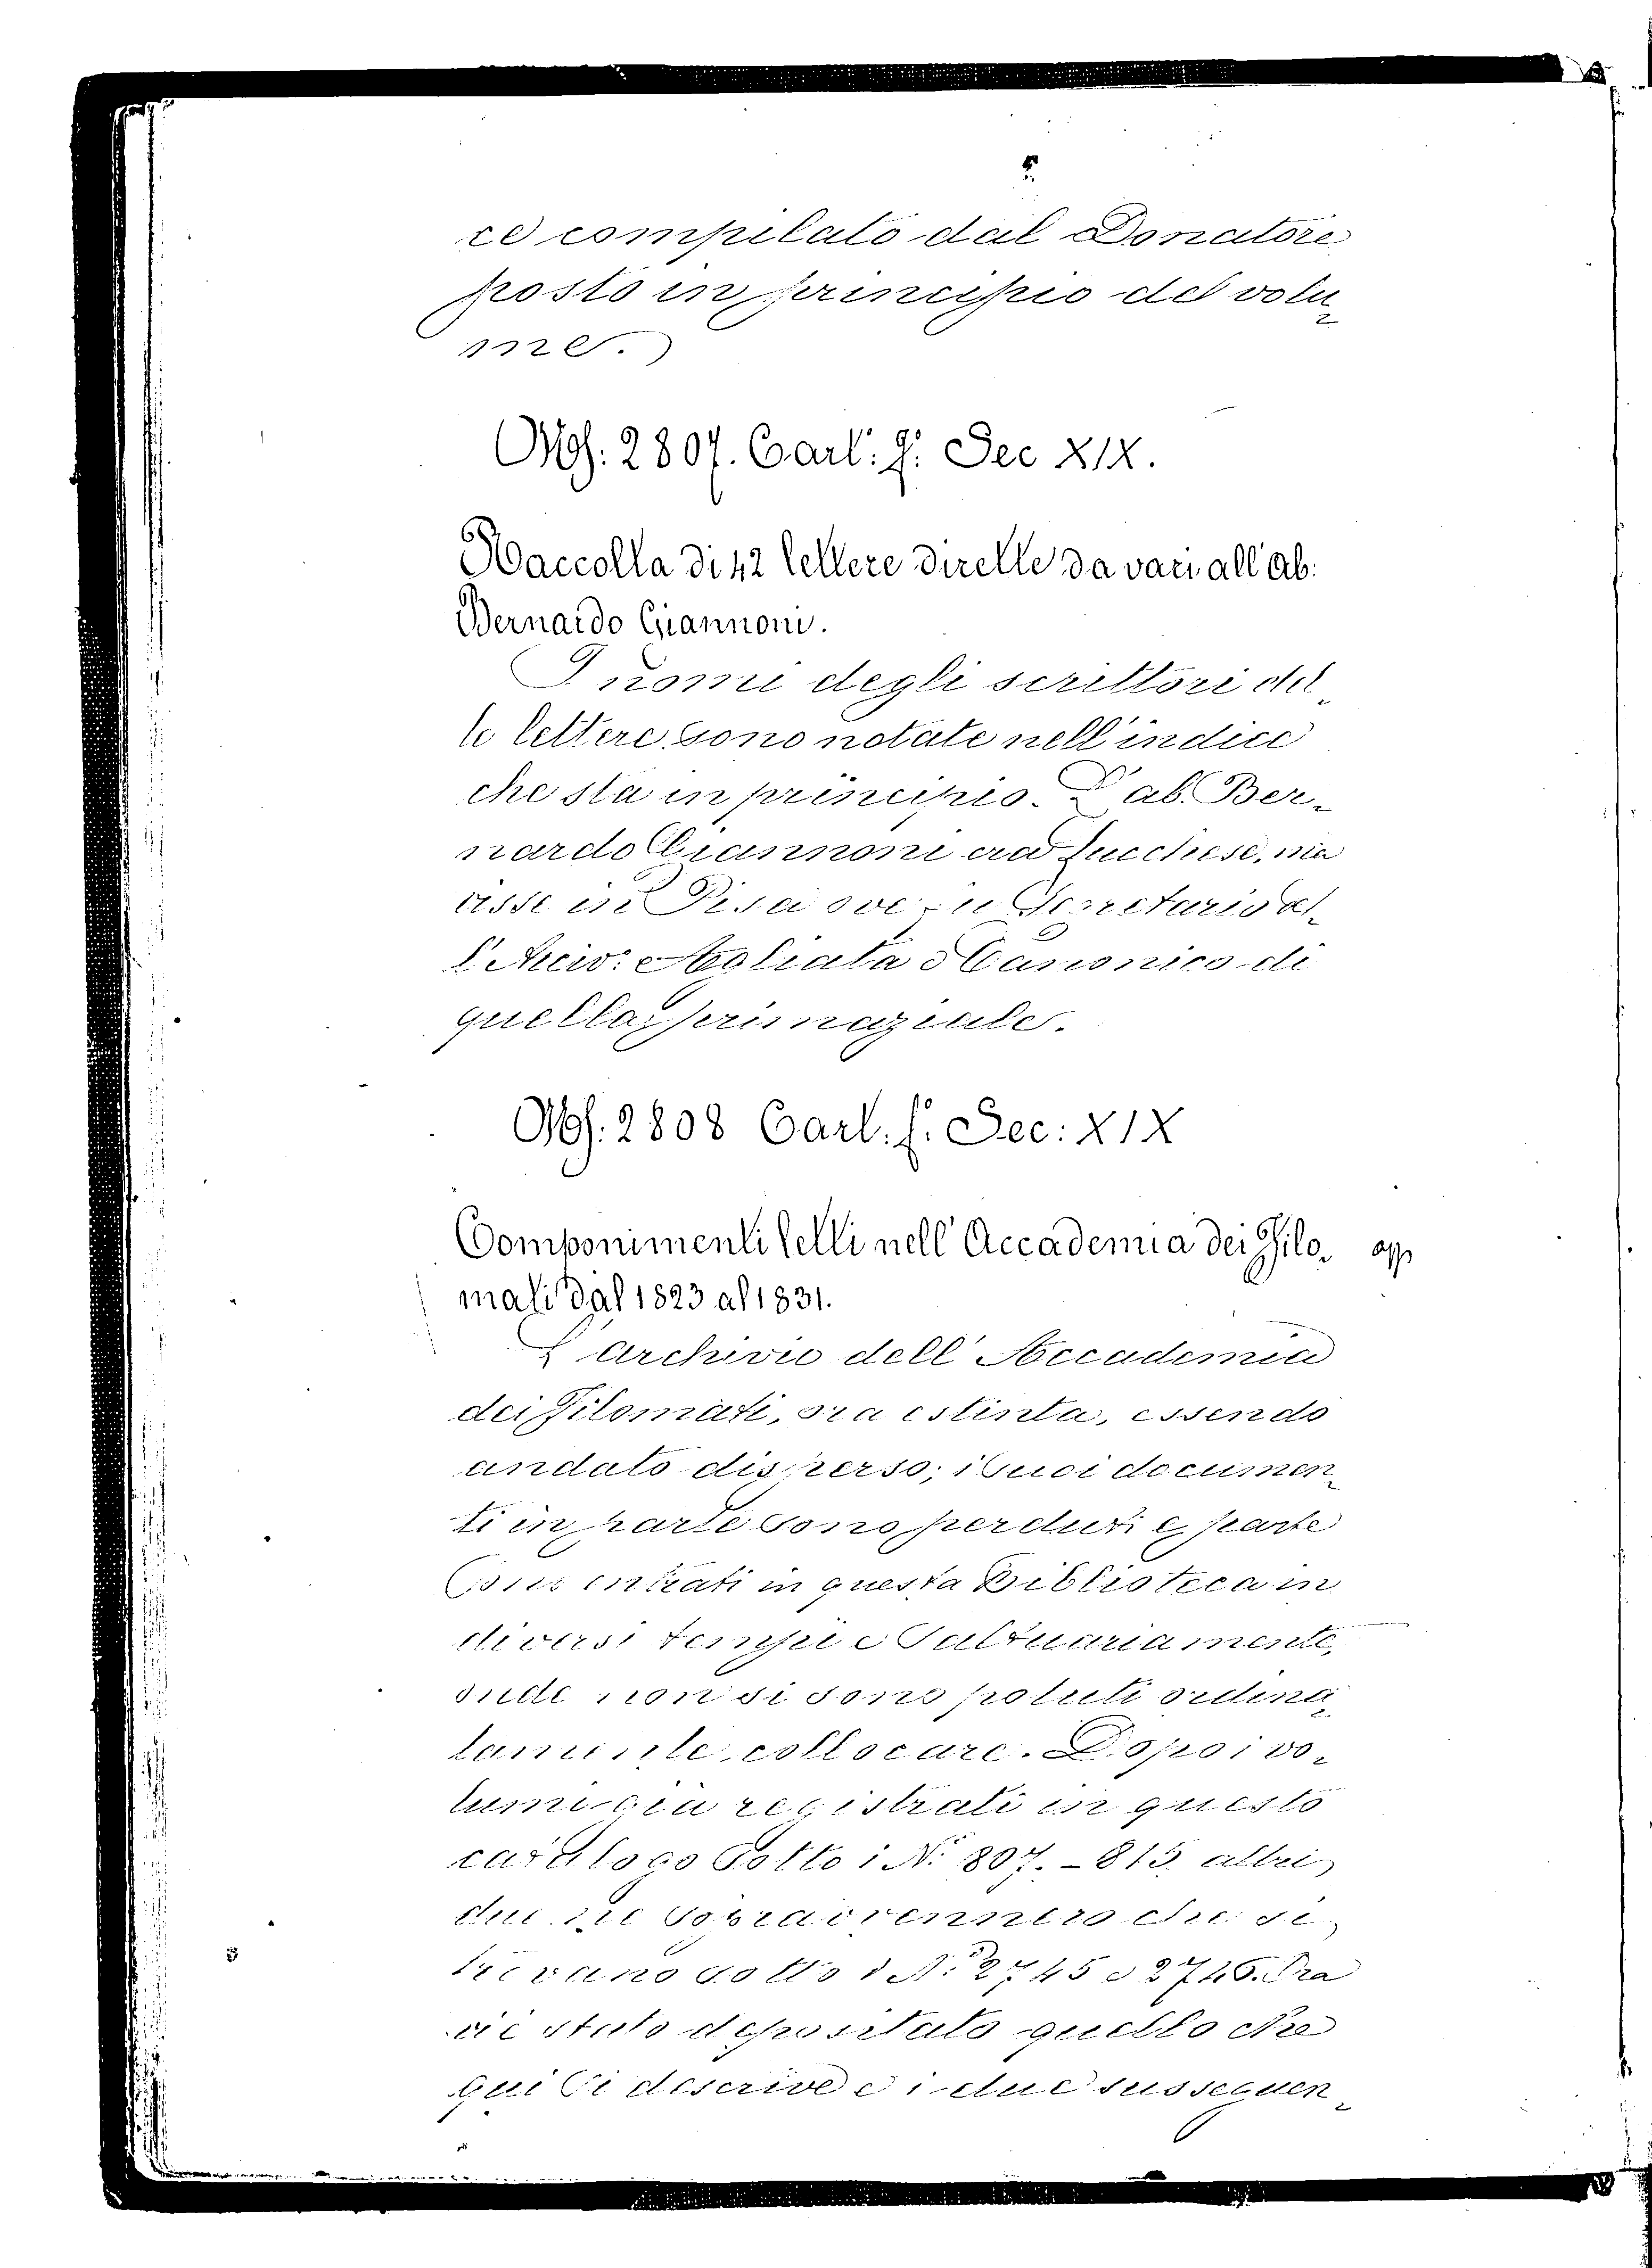 ce compilato dal Donatore
posto in principio del volu_
me.)
Ms. 2807. Cart: f: Sec XIX.
Raccolta di 42 lettere dirette da vari all'ab:
Bernardo Giannoni.
I nomi degli scrittori del_
le lettere sono notate nell'indice
che sta in principio. L'ab. Ber_
nardo Giannoni era Lucchese, ma
visse in Pisa ove fu Segretario al_
l'Arciv: Agliata e Canonico di
quella primaziale.
Ms. 2808 Cart. f. Sec: XIX
Componimenti letti nell'Accademia dei Filo_
mati dal 1823 al 1831.
L'archivio dell'Accademia
dei Filomati, ora estinta, essendo
andato disperso, i suoi documen_
ti in parte sono perduti e parte
sono entrati in questa Biblioteca in
diversi tempi e saltuariamente,
onde non si sono potuti ordina_
tamente collocare. Dopo i vo_
lumi già registrati in questo
catalogo sotto i N: 807. - 815. altri
due ne sopravvennero che si
trovano sotto i N: 2745 e 2746. Ora
vi è stato depositato quello che
qui si descrive e i due susseguen_